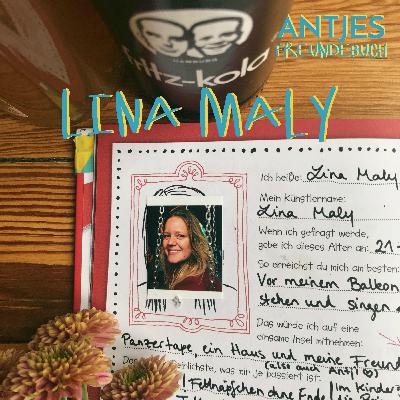 ANTJES
FREUNDEBUCH
HAMBURG
fritz-kola
LINA MALY
Ich heiße: Lina Maly
Mein Künstlername:
Lina Maly
Wenn ich gefragt werde,
gebe ich dieses Alter an: 21
So erreichst du mich am besten:
Vor meinem Balkon
stehen und singen
Das würde ich auf eine
einsame Insel mitnehmen:
Panzertape, ein Haus und meine Freund
(also auch Antje)
mir je passiert ist:
Fettnäpfchen ohne Ende! Im Kinder